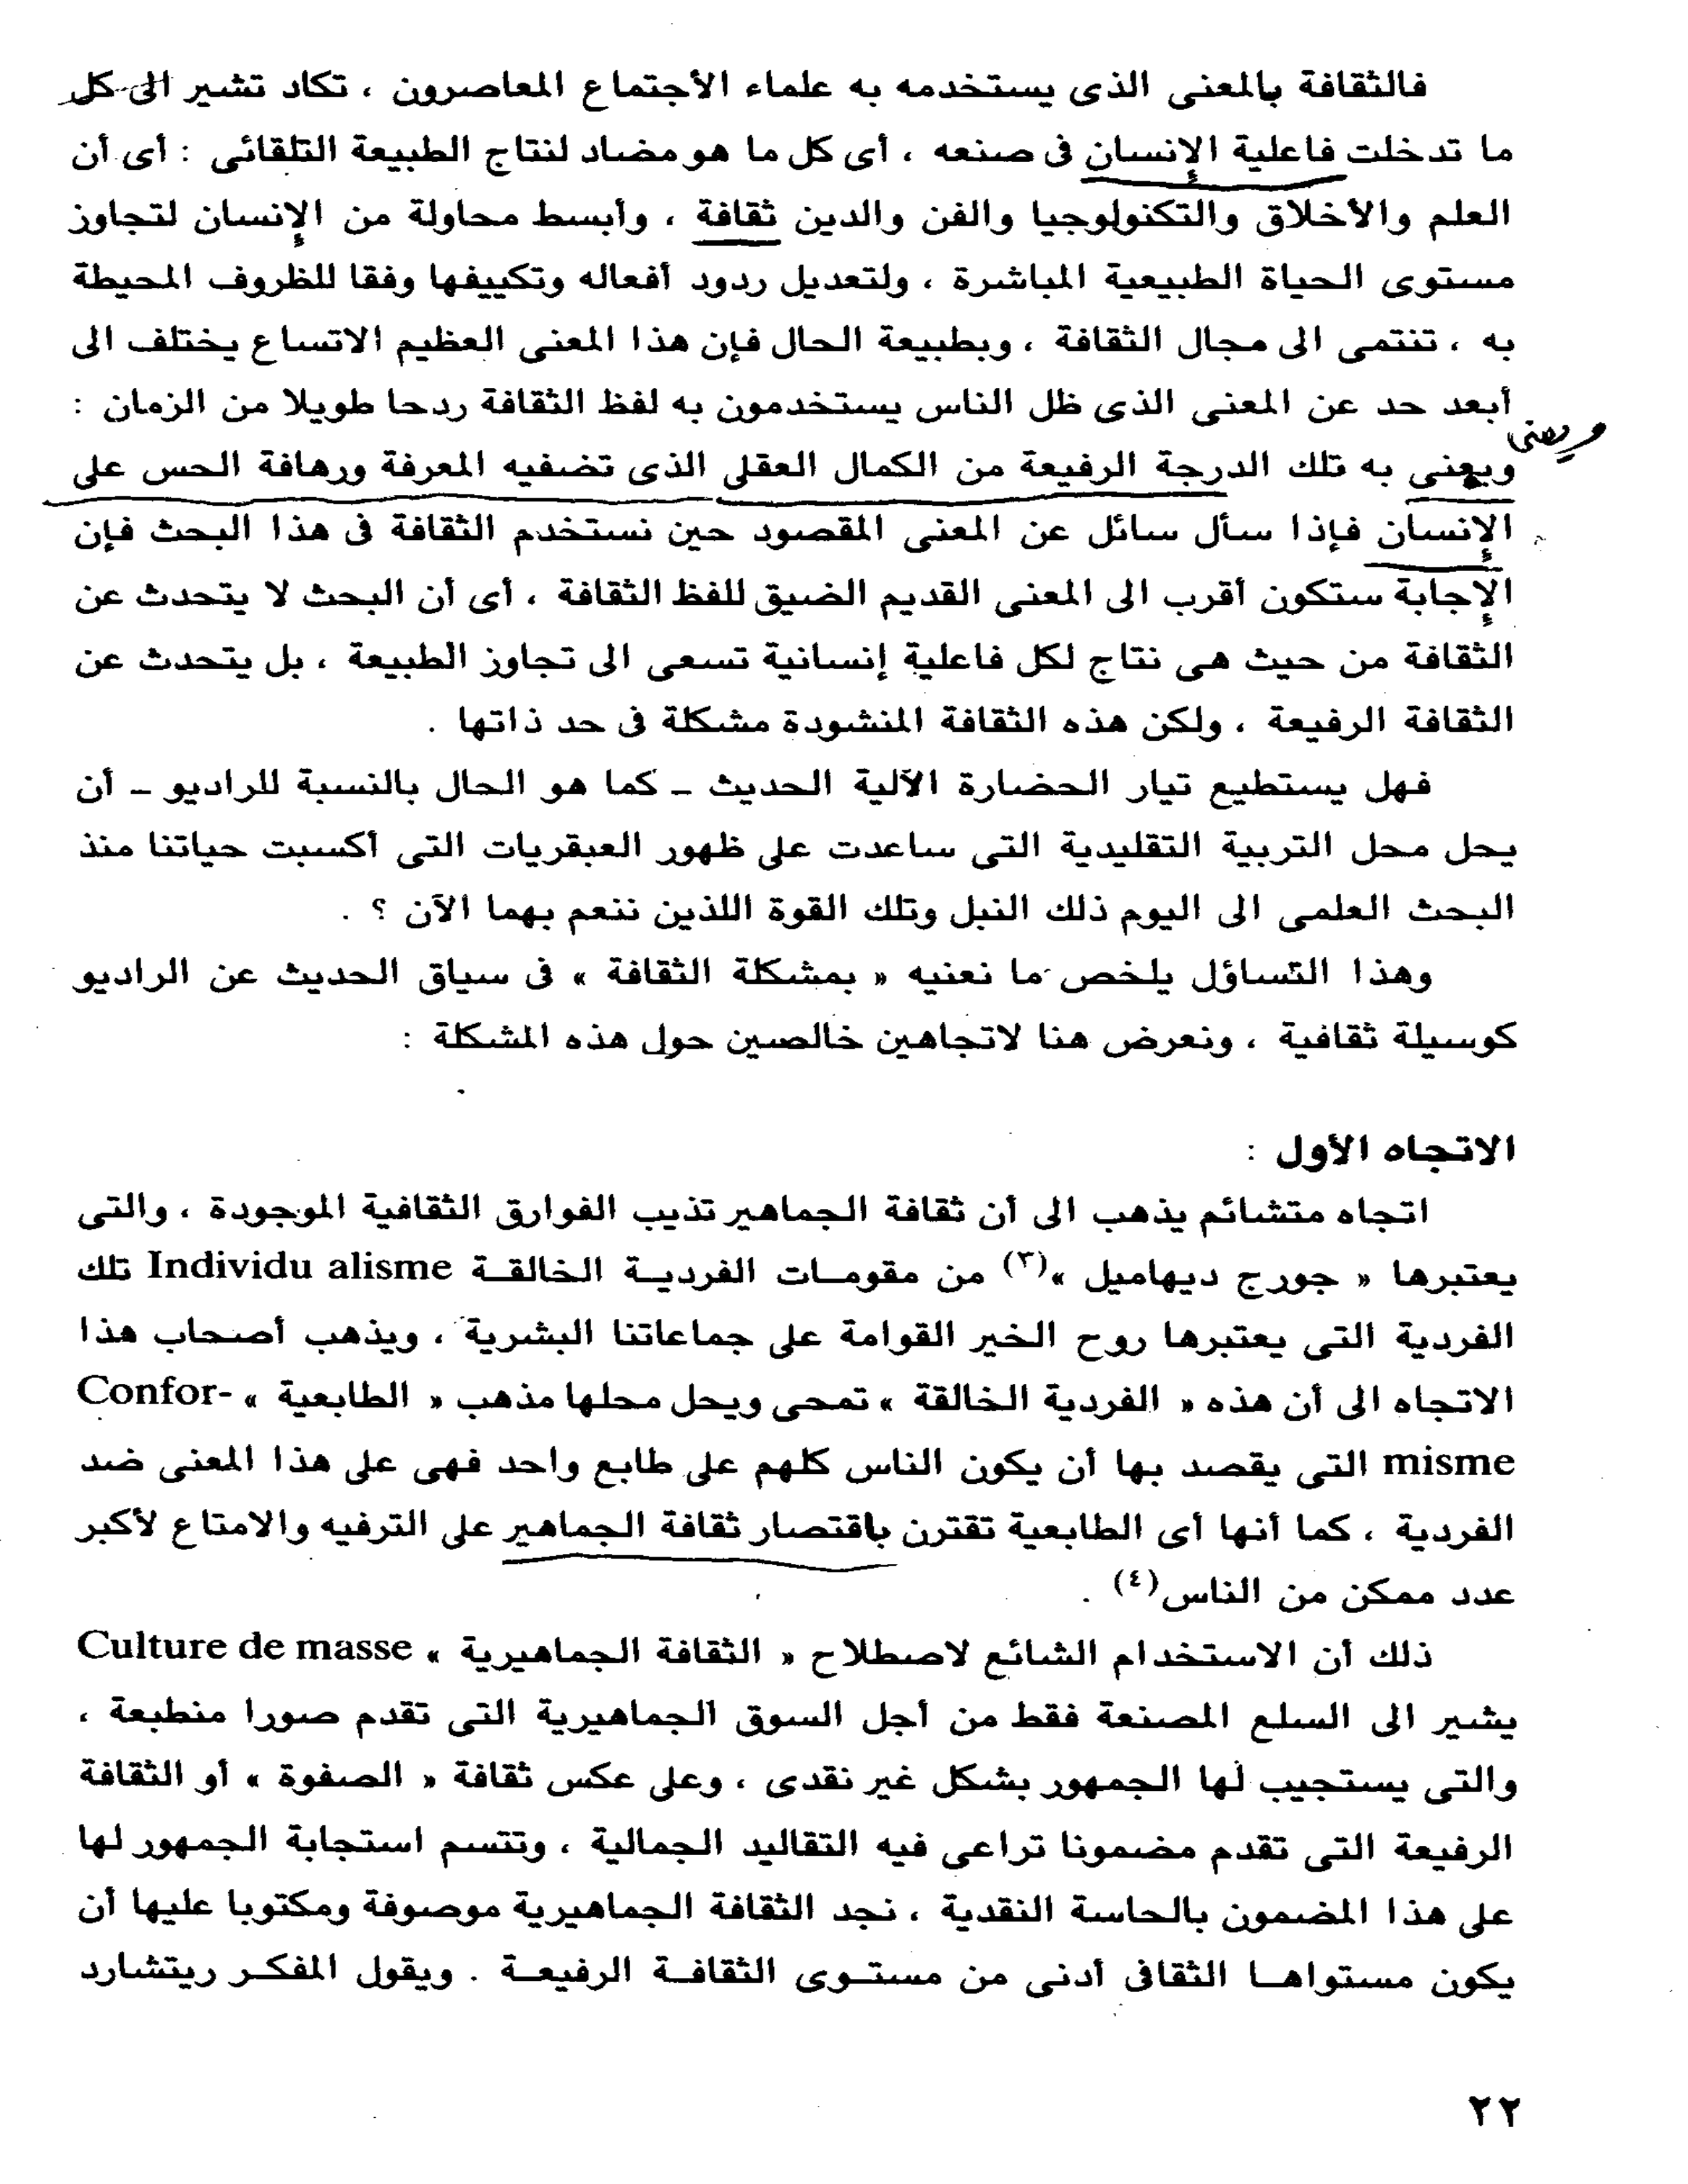 فالثقافة بالمعنى الذى يستخدمه به علماء الأجتماع المعاصرون ، تكاد تشير الى كل
ما تدخلت فاعلية الإنسان فى صنعه ، أى كل ما هو مضاد لنتاج الطبيعة التلقائى : أى أن
العلم والأخلاق والتكنولوجيا والفن والدين ثقافة ، وأبسط محاولة من الإنسان لتجاوز
مستوى الحياة الطبيعية المباشرة ، ولتعديل ردود أفعاله وتكييفها وفقا للظروف المحيطة
به ، تنتمى الى مجال الثقافة ، وبطبيعة الحال فإن هذا المعنى العظيم الاتساع يختلف الى
أبعد حد عن المعنى الذى ظل الناس يستخدمون به لفظ الثقافة ردحا طويلا من الزمان :
ويعنى
ويعنى به تلك الدرجة الرفيعة من الكمال العقلى الذى تضفيه المعرفة ورهافة الحس على
الإنسان فإذا سأل سائل عن المعنى المقصود حين نستخدم الثقافة فى هذا البحث فإن
الإجابة ستكون أقرب الى المعنى القديم الضيق للفظ الثقافة ، أى أن البحث لا يتحدث عن
الثقافة من حيث هى نتاج لكل فاعلية إنسانية تسعى الى تجاوز الطبيعة ، بل يتحدث عن
الثقافة الرفيعة ، ولكن هذه الثقافة المنشودة مشكلة فى حد ذاتها .
فهل يستطيع تيار الحضارة الآلية الحديث - كما هو الحال بالنسبة للراديو - أن
يحل محل التربية التقليدية التى ساعدت على ظهور العبقريات التى أكسبت حياتنا منذ
البحث العلمى الى اليوم ذلك النبل وتلك القوة اللذين ننعم بهما الآن ؟ .
وهذا التساؤل يلخص ما نعنيه « بمشكلة الثقافة » فى سياق الحديث عن الراديو
كوسيلة ثقافية ، ونعرض هنا لاتجاهين خالصين حول هذه المشكلة :
الاتجاه الأول :
اتجاه متشائم يذهب الى أن ثقافة الجماهير تذيب الفوارق الثقافية الموجودة ، والتى
يعتبرها « جورج ديهاميل »(٣) من مقومات الفردية الخالقة Individu alisme تلك
الفردية التى يعتبرها روح الخير القوامة على جماعاتنا البشرية ، ويذهب أصحاب هذا
الاتجاه الى أن هذه « الفردية الخالقة » تمحى ويحل محلها مذهب « الطابعية » Confor-
misme التى يقصد بها أن يكون الناس كلهم على طابع واحد فهى على هذا المعنى ضد
الفردية ، كما أنها أى الطابعية تقترن باقتصار ثقافة الجماهير على الترفيه والامتاع لأكبر
عدد ممكن من الناس(٤) .
ذلك أن الاستخدام الشائع لاصطلاح « الثقافة الجماهيرية » Culture de masse
يشير الى السلع المصنعة فقط من أجل السوق الجماهيرية التى تقدم صورا منطبعة ،
والتى يستجيب لها الجمهور بشكل غير نقدى ، وعلى عكس ثقافة « الصفوة » أو الثقافة
الرفيعة التى تقدم مضمونا تراعى فيه التقاليد الجمالية ، وتتسم استجابة الجمهور لها
على هذا المضمون بالحاسة النقدية ، نجد الثقافة الجماهيرية موصوفة ومكتوبا عليها أن
يكون مستواها الثقافى أدنى من مستوى الثقافة الرفيعة . ويقول المفكر ريتشارد
٢٢